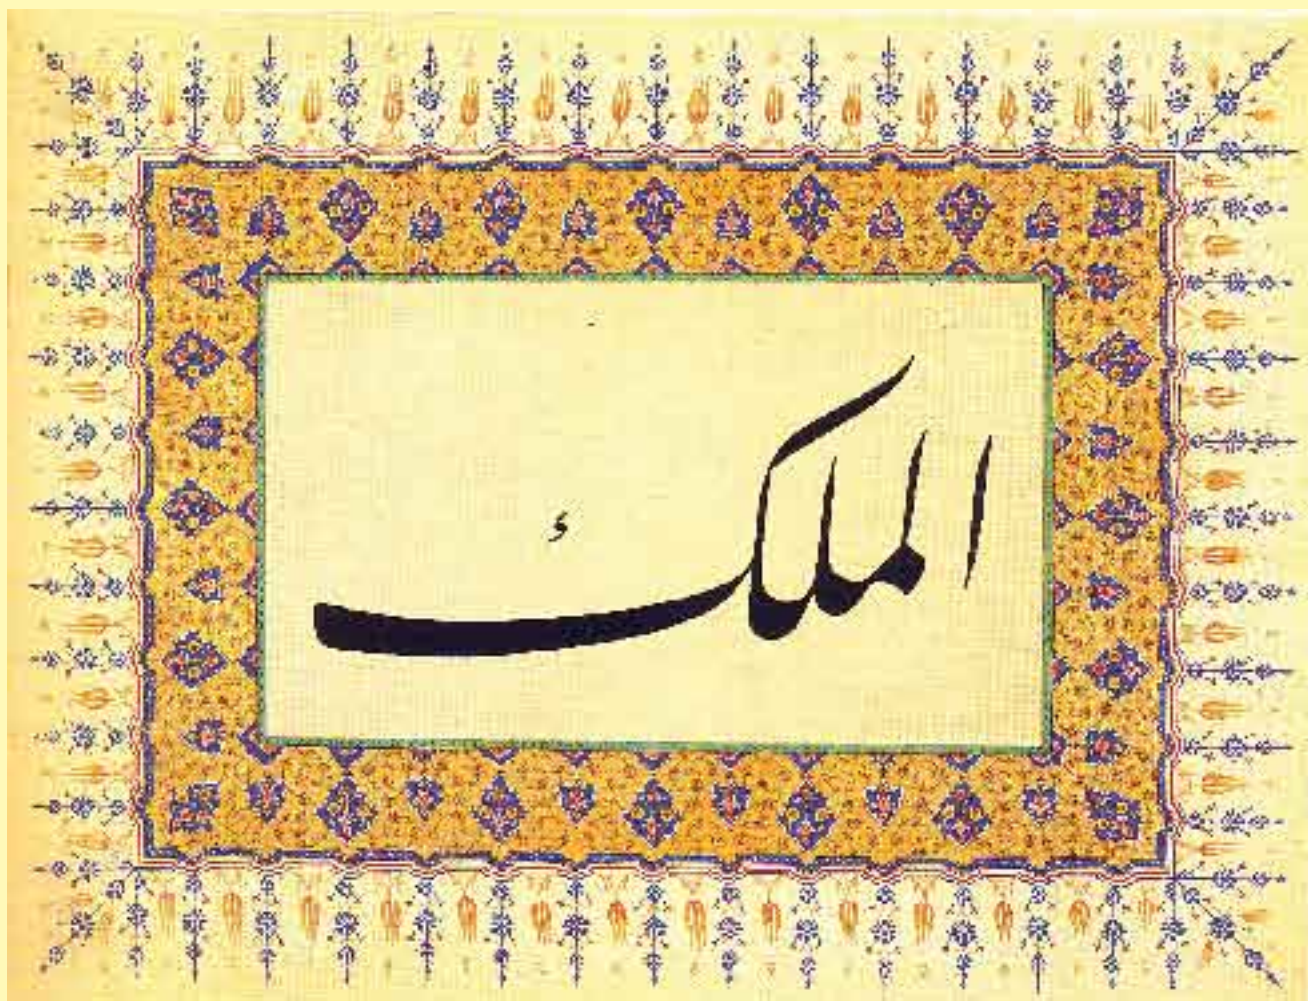 الملک